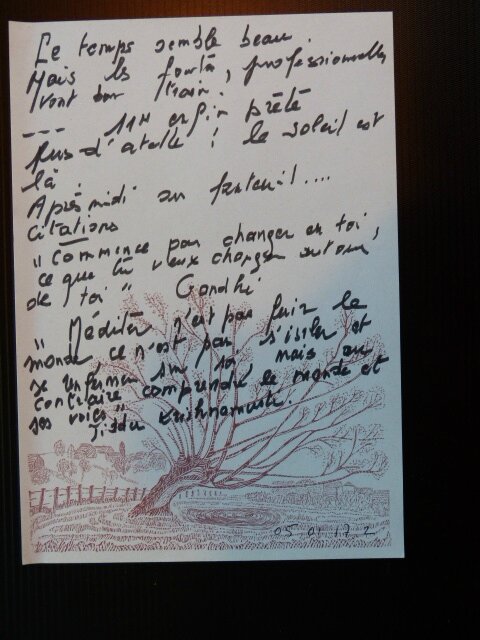 Le temps semble beau.
Mais les , professionnelles
vont bon train.
--- 11H enfin prête
plus d'attelle ! le soleil est
là
Après midi au fauteuil....
Citations
" Commence par changer en toi,
ce que tu veux changer autour,
de toi " Gandhi
" Méditer n'est pas fuir le
monde ce n'est pas s'isoler et
se renfermer sur soi mais au
contraire comprendre le monde et
ses voies "
Jiddu Krishnamurti.
05.01.17 2